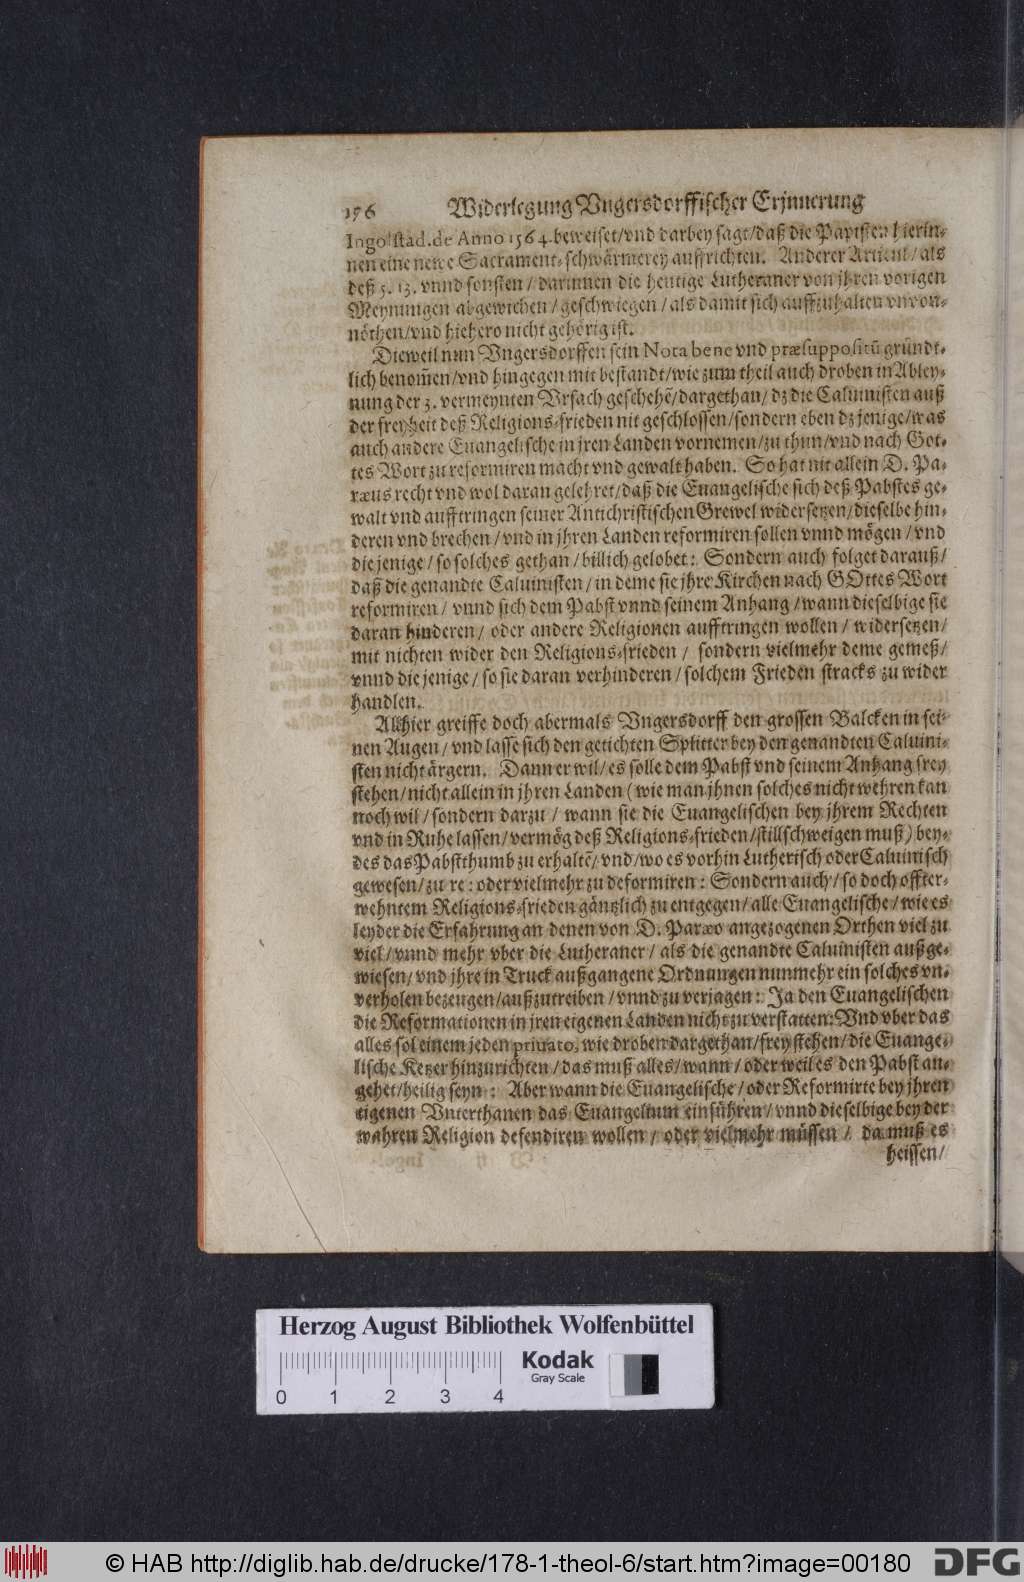 196 Widerlegung Vngersdorffischer Erjnnerung
Ingolstad.de Anno 1564. beweiset/vnd darbey sagt/daß die Papisten hierin-
nen eine newe Sacrament-schwärmerey auffrichten. Anderer Articul/als
deß 5. 13. vnnd sonsten/darinnen die heutige Lutheraner von jhren vorigen
Meynungen abgewichen/geschwiegen/als damit sich auffzuhalten vnvon-
nöthen/vnd hiehero nicht gehörig ist.
Dieweil nun Vngersdorffen sein Nota bene vnd præsuppositū gründt-
lich benom̄en/vnd hingegen mit bestandt/wie zum theil auch droben in Abley-
nung der 3. vermeynten Vrsach geschehē/dargethan/dz die Caluinisten auß
der freyheit deß Religions-frieden nit geschlossen/sondern eben dz jenige/was
auch andere Euangelische in jren Landen vornemen/zu thun/vnd nach Got-
tes Wort zu reformiren macht vnd gewalt haben. So hat nit allein D. Pa-
ræus recht vnd wol daran gelehret/daß die Euangelische sich deß Pabstes ge-
walt vnd aufftringen seiner Antichristischen Grewel widersetzen/dieselbe hin-
deren vnd brechen/vnd in jhren Landen reformiren sollen vnnd mögen/vnd
die jenige/so solches gethan/billich gelobet: Sondern auch folget darauß/
daß die genandte Caluinisten/in deme sie jhre Kirchen nach GOttes Wort
reformiren/vnnd sich dem Pabst vnnd seinem Anhang/wann dieselbige sie
daran hinderen/oder andere Religionen aufftringen wollen/widersetzen/
mit nichten wider den Religions-frieden/sondern vielmehr deme gemeß/
vnnd die jenige/so sie daran verhinderen/solchem Frieden stracks zu wider
handlen.
Allhier greiffe doch abermals Vngersdorff den grossen Balcken in sei-
nen Augen/vnd lasse sich den getichten Splitter bey den genandten Caluini-
sten nicht ärgern. Dann er wil/es solle dem Pabst vnd seinem Anhang frey
stehen/nicht allein in jhren Landen (wie man jhnen solches nicht wehren kan
noch wil/sondern darzu/wann sie die Euangelischen bey jhrem Rechten
vnd in Ruhe lassen/vermög deß Religions-frieden/stillschweigen muß) bey-
des das Pabstthumb zu erhaltē/vnd/wo es vorhin Lutherisch oder Caluinisch
gewesen/zu re: oder vielmehr zu deformiren: Sondern auch/so doch offter-
wehntem Religions-frieden gäntzlich zu entgegen/alle Euangelische/wie es
leyder die Erfahrung an denen von D. Paræo angezogenen Orthen viel zu
viel/vnnd mehr vber die Lutheraner/als die genandte Caluinisten außge-
wiesen/vnd jhre in Truck außgangene Ordnungen nunmehr ein solches vn-
verholen bezeugen/außzutreiben/vnnd zu verjagen: Ja den Euangelischen
die Reformationen in jren eigenen Landen nicht zu verstatten: Vnd vber das
alles sol einem jeden priuato, wie droben dargethan/frey stehen/die Euange-
lische Ketzer hinzurichten/das muß alles/wann/oder weil es den Pabst an-
gehet/heilig seyn: Aber wann die Euangelische/oder Reformirte bey jhren
eigenen Vnterthanen das Euangelium einführen/vnnd dieselbige bey der
wahren Religion defendiren wollen/oder vielmehr müssen/da muß es
heissen/
Herzog August Bibliothek Wolfenbüttel
Kodak
Gray Scale
0 1 2 3 4
© HAB http://diglib.hab.de/drucke/178-1-theol-6/start.htm?image=00180
DFG